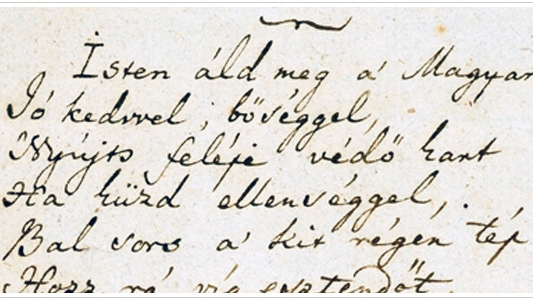 Isten áld meg a' Magyar
Jó kedvvel, bőséggel,
Nyújts feléje védő kart
Ha küzd ellenséggel,
Bal sors a' kit régen tép
Hozz rá víg esztendőt